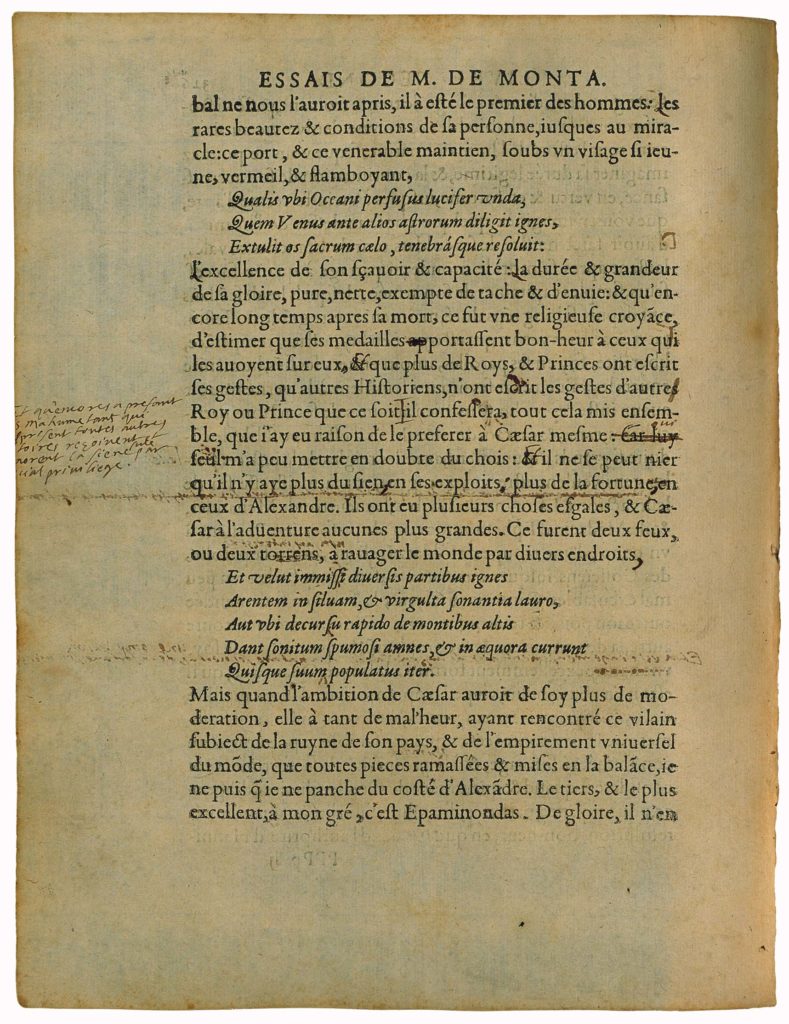 ESSAIS DE M. DE MONTA.
bal ne nous l'auroit apris, il à esté le premier des hommes: Les
rares beautez & conditions de sa personne, iusques au mira-
cle: ce port, & ce venerable maintien, soubs vn visage si ieu-
ne, vermeil, & flamboyant,
Qualis vbi Oceani perfusus lucifer vnda,
Quem Venus ante alios astrorum diligit ignes,
Extulit os sacrum cælo, tenebrásque resoluit:
L'excellence de son sçauoir & capacité: La durée & grandeur
de sa gloire, pure, nette, exempte de tache & d'enuie: & qu'en-
core long temps apres sa mort, ce fut vne religieuse croyãce,
d'estimer que ses medailles portassent bon-heur à ceux qui
les auoyent sur eux, & que plus de Roys, & Princes ont escrit
ses gestes, qu'autres Historiens, n'ont escrit les gestes d'autre
Roy ou Prince que ce soit il confessera, tout cela mis ensem-
ble, que i'ay eu raison de le preferer à Cæsar mesme: Car luy
seul m'a peu mettre en doubte du chois: & il ne se peut nier
qu'il n'y aye plus du sien en ses exploits, plus de la fortune en
ceux d'Alexandre. Ils ont eu plusieurs choses esgales, & Cæ-
sar à l'aduenture aucunes plus grandes. Ce furent deux feux,
ou deux torrens, à rauager le monde par diuers endroits,
Et velut immissi diuersis partibus ignes
Arentem in siluam, & virgulta sonantia lauro,
Aut vbi decursu rapido de montibus altis
Dant sonitum spumosi amnes, & in æquora currunt
Quisque suum populatus iter.
Mais quand l'ambition de Cæsar auroit de soy plus de mo-
deration, elle à tant de mal'heur, ayant rencontré ce vilain
subiect de la ruyne de son pays, & de l'empirement vniuersel
du mõde, que toutes pieces ramassées & mises en la balãce, ie
ne puis q̃ ie ne panche du costé d'Alexãdre. Le tiers, & le plus
excellent, à mon gré, c'est Epaminondas. De gloire, il n'en
qu'encores a presant
mahumetans qui
toutes autres
la siene par
priuiliege.